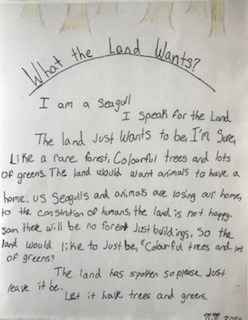 What the Land Wants?
I am a Seagull
I Speak for the Land
The land Just Wants to be, I'm Sure,
Like a rare forest, Colourful trees and lots
of greens. The land would want animals to have a
home. us Seagulls and animals are losing our home,
to the constration of humans, the land is not happy.
soon there will be no forest Just buildings, So the
land would like to Just be, "Colourful trees and lot
of greens?
The land has spoken so please Just
leave it be.
Let it have trees and greens.